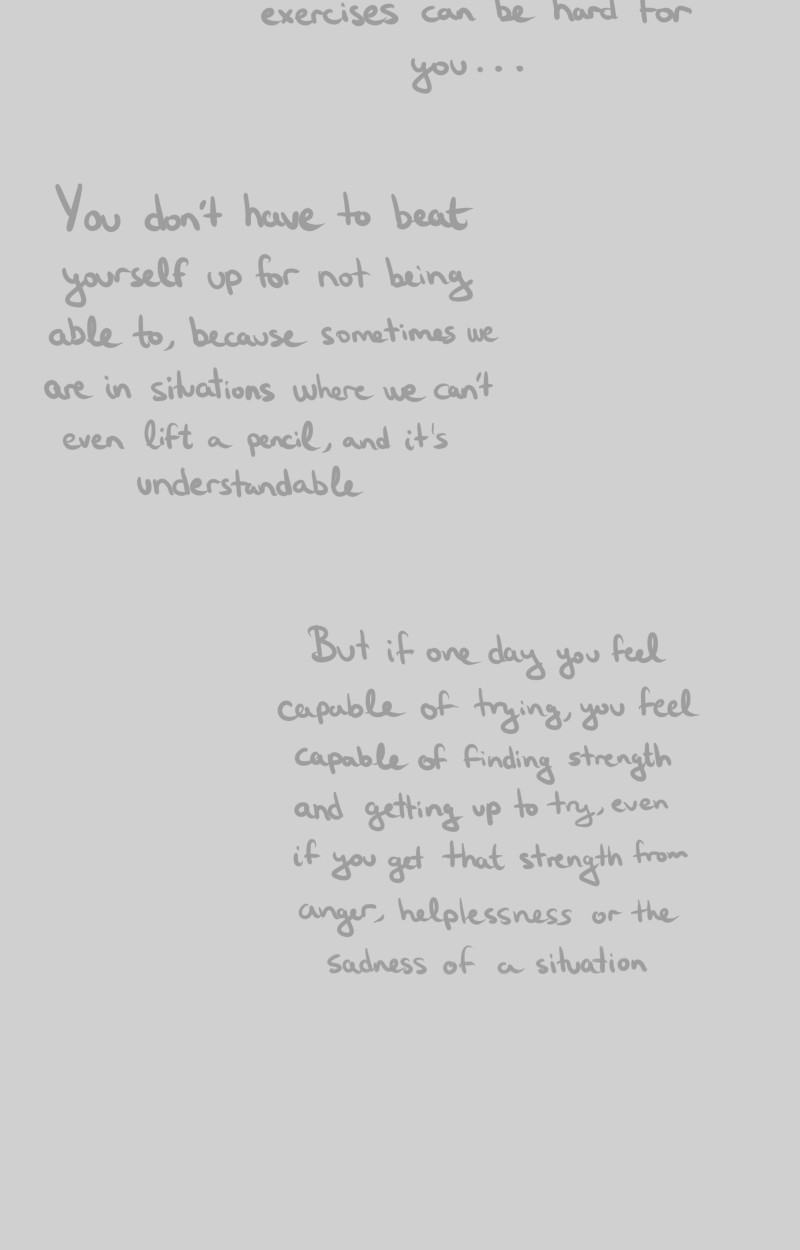 exercises can be hard for
you...
You don't have to beat
yourself up for not being
able to, because sometimes we
are in situations where we can't
even lift a pencil, and it's
understandable
But if one day you feel
capable of trying, you feel
capable of finding strength
and getting up to try, even
if you get that strength from
anger, helplessness or the
sadness of a situation